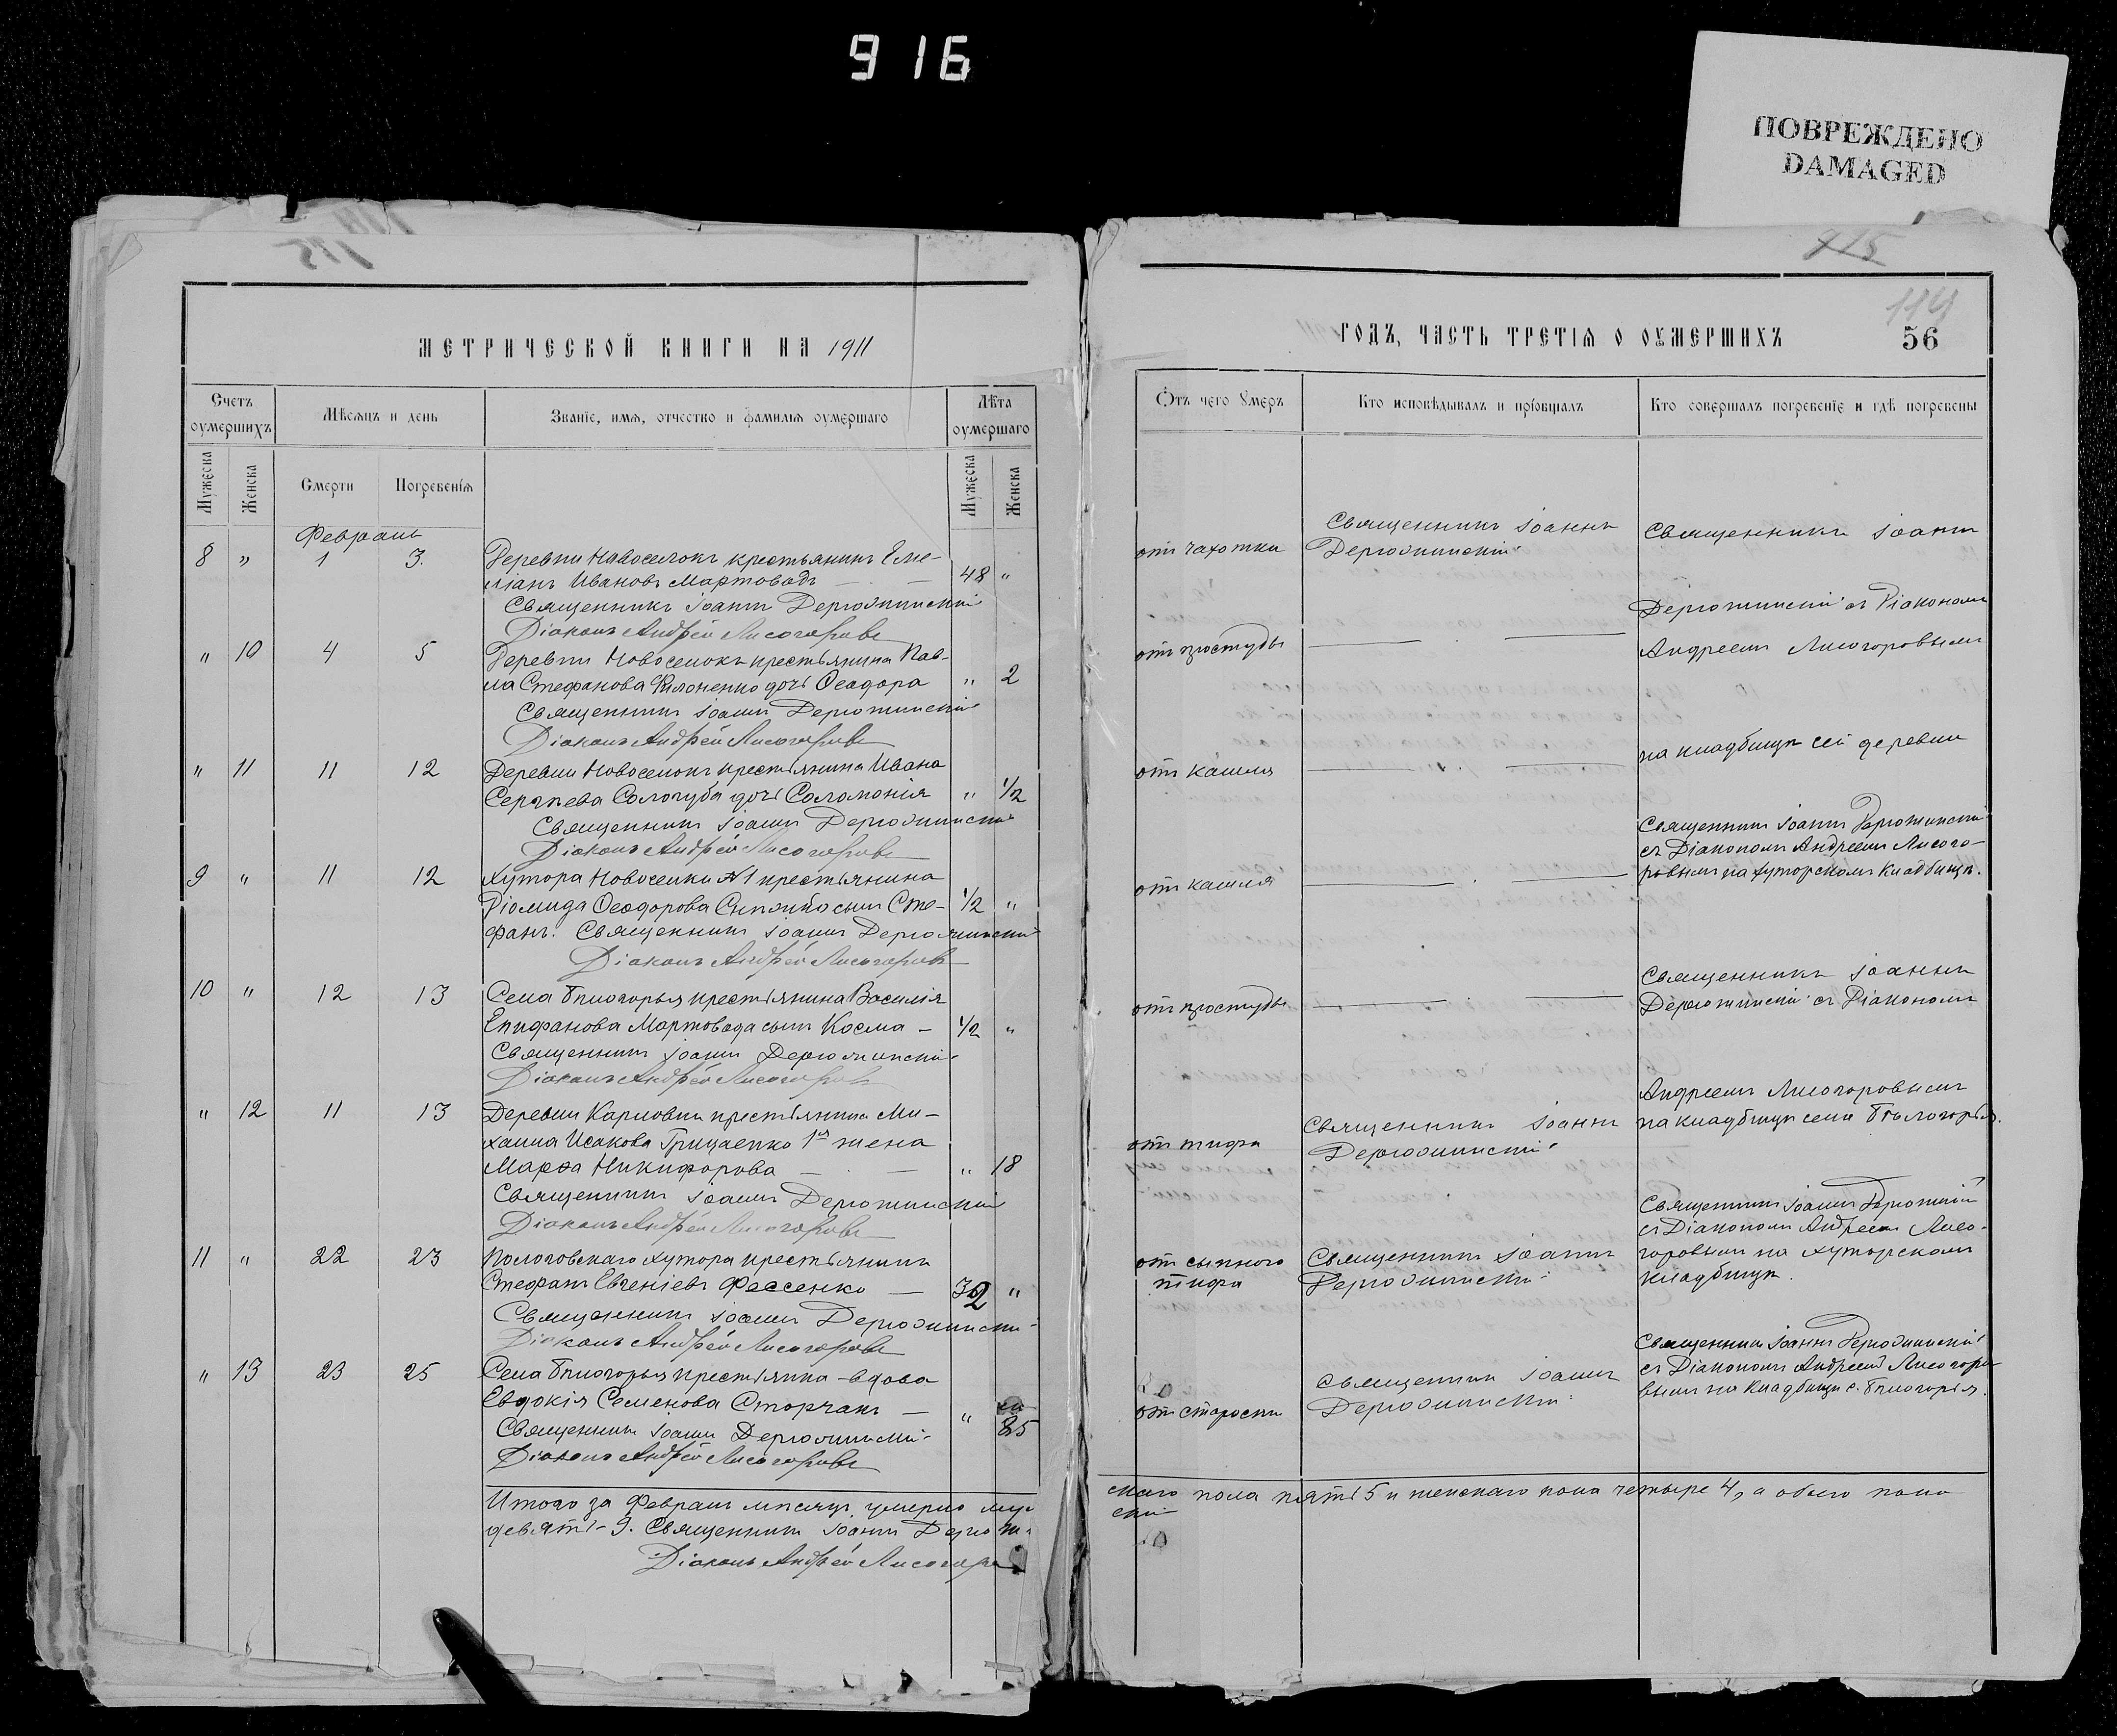 916
ПОВРЕЖДЕНО
DAMAGED
115
915
114
МЕТРИЧЕСКОЙ КНИГИ НА 1911
ГОДЪ, ЧАСТЬ ТРЕТІЯ О ОУМЕРШИХЪ
56
Счетъ оумершихъ
Мѣсяцъ и день
Званіе, имя, отчество и фамилія оумершаго
Лѣта оумершаго
Мужеска
Женска
Смерти
Погребенія
Мужеска
Женска
Отъ чего умеръ
Кто исповѣдывалъ и пріобщалъ
Кто совершалъ погребеніе и гдѣ погребены
Февраль
8 " 1 3. Деревни Новоселокъ крестьянинъ Еме-
ліанъ Ивановъ Мартовадъ — 48 "
Священникъ Іоаннъ Дерюжинскій
Діаконъ Андрей Лисогоровъ
" 10 4 5 Деревни Новоселокъ крестьянина Пав-
ла Стефанова Филоненко дочь Ѳеодора " 2
Священникъ Іоаннъ Дерюжинскій
Діаконъ Андрей Лисогоровъ
" 11 11 12 Деревни Новоселокъ крестьянина Ивана
Сергѣева Сологуба дочь Соломонія " 1/2
Священникъ Іоаннъ Дерюжинскій
Діаконъ Андрей Лисогоровъ
9 " 11 12 Хутора Новоселки №1 крестьянина
Діомида Ѳеодорова сынъ Сте- 1/2 "
фанъ. Священникъ Іоаннъ Дерюжинскій
Діаконъ Андрей Лисогоровъ
10 " 12 13 Села Бѣлогорья крестьянина Василія
Епифанова Мартовада сынъ Косма — 1/2 "
Священникъ Іоаннъ Дерюжинскій
Діаконъ Андрей Лисогоровъ
" 12 11 13 Деревни Карловки крестьянина Ми-
хаила Исакова Грицаенко 1я жена
Марѳа Никифорова — " 18
Священникъ Іоаннъ Дерюжинскій
Діаконъ Андрей Лисогоровъ
11 " 22 23 Пологовскаго хутора крестьянинъ
Стефанъ Евгеніевъ Фесенко — 32 "
Священникъ Іоаннъ Дерюжинскій
Діаконъ Андрей Лисогоровъ
" 13 23 25 Села Бѣлогорья крестьянка-вдова
Евдокія Семенова Сторчакъ — "
85
Священникъ Іоаннъ Дерюжинскій
Діаконъ Андрей Лисогоровъ
Итого за Февраль мѣсяцъ умерло муж
девять-9. Священникъ Іоаннъ Дерюжи
Діаконъ Андрей Лисогоро
отъ чахотки
Священникъ Іоаннъ
Дерюжинскій
Священникъ Іоаннъ
Дерюжинскій съ Діакономъ
отъ простуды
Андреемъ Лисогоровымъ
на кладбищѣ сей деревни
отъ кашля
Священникъ Іоаннъ Дерюжинскій
съ Діакономъ Андреемъ Лисого-
ровымъ на хуторскомъ кладбищѣ.
отъ кашля
Священникъ Іоаннъ
отъ простуды
Дерюжинскій съ Діакономъ
Андреемъ Лисогоровымъ
на кладбищѣ села Бѣлогорья.
отъ тифа
Священникъ Іоаннъ
Дерюжинскій
Священникъ Іоаннъ
съ Діакономъ Андреемъ Лисо-
горовымъ на хуторскомъ
кладбищѣ.
отъ сыпного
тифа
Священникъ Іоаннъ
Дерюжинскій
Священникъ Іоаннъ Дерюжинскій
съ Діакономъ Андреемъ Лисогоро
вымъ на кладбищѣ с. Бѣлогорья.
отъ старости
Священникъ Іоаннъ
Дерюжинскій
скаго пола пять 5 и женскаго пола четыре 4, а обоего пола
скій